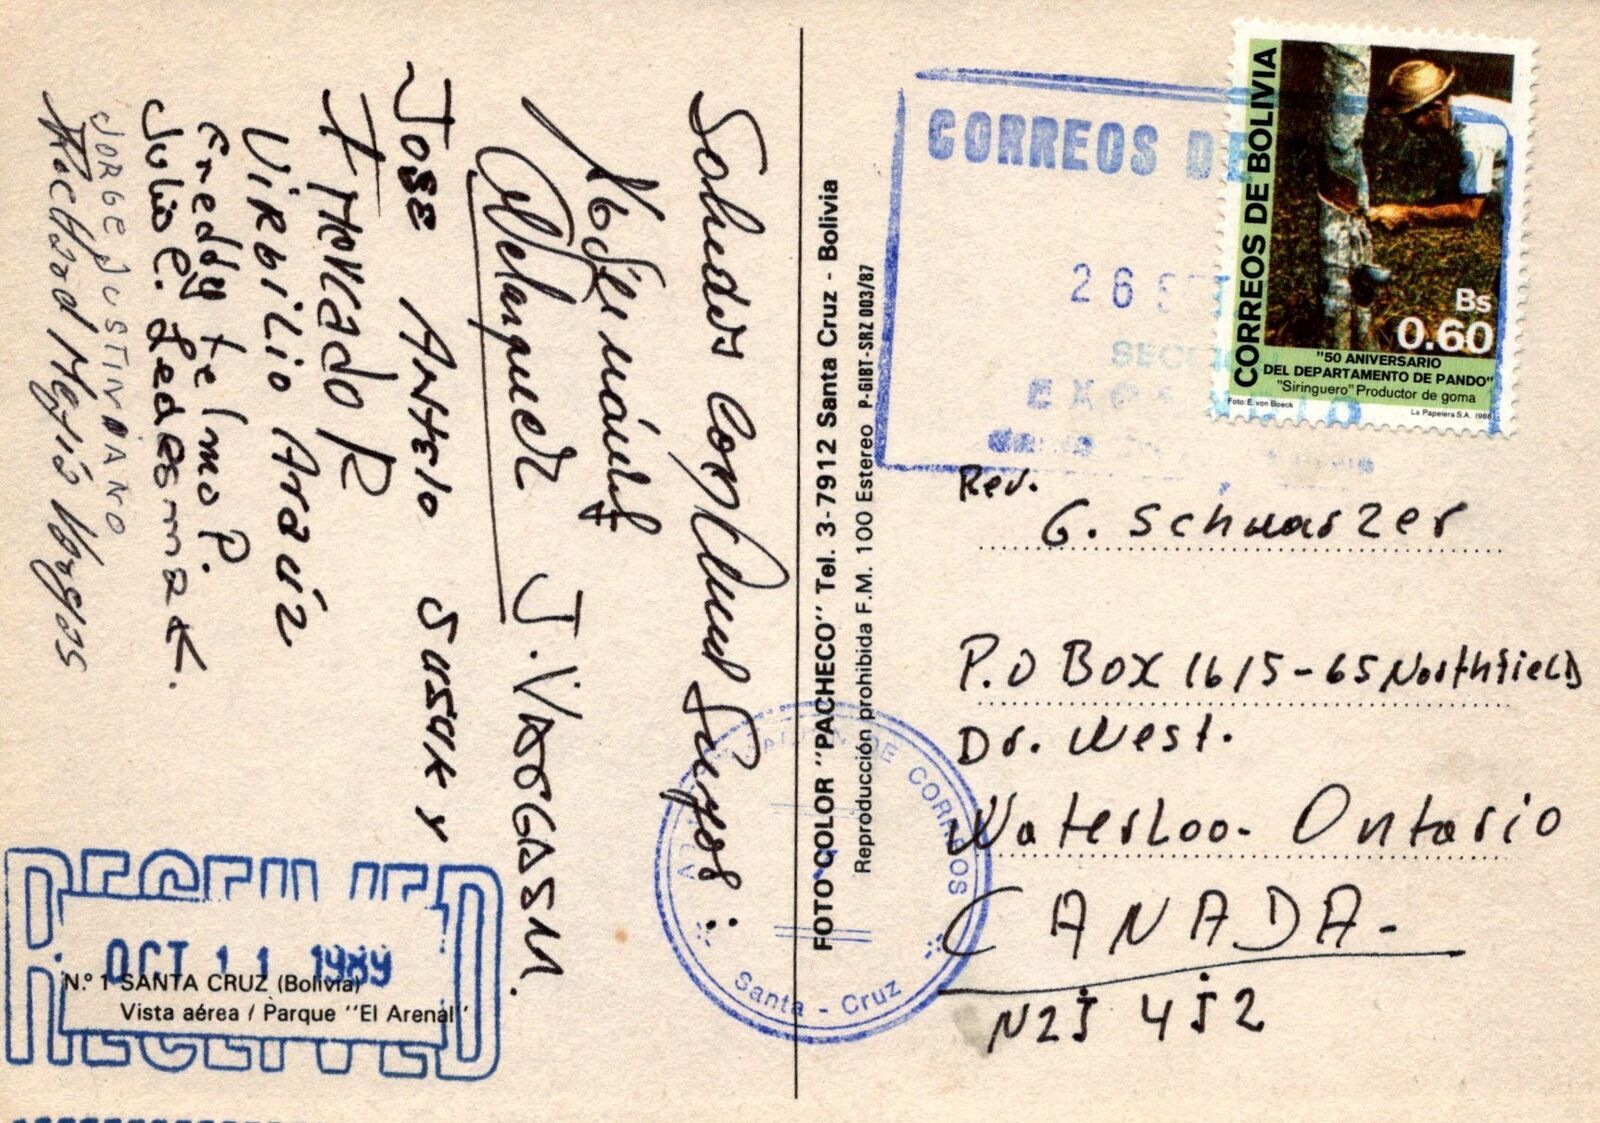 Saludos
J. VARGAS M.
JOSE ANTELO SUSEK Y
VIRBILIO Araúz
Freddy telmo P.
Julio E. Ledesma K.
JORGE JUSTINIANO
Mejia Vargas
RECEIVED
OCT 11 1989
N.° 1 SANTA CRUZ (Bolivia)
Vista aérea / Parque "El Arenal"
FOTO COLOR "PACHECO" Tel. 3-7912 Santa Cruz - Bolivia
Reproducción prohibida F.M. 100 Estereo P-GIBT-SRZ 003/87
CORREOS DE
26
DE CORREOS
Santa - Cruz
CORREOS DE BOLIVIA
Bs
0.60
"50 ANIVERSARIO
DEL DEPARTAMENTO DE PANDO"
"Siringuero" Productor de goma
Foto: E. von Boeck La Papelera S.A. 1988
Rev.
G. Schwarzer
P.O BOX 1615-65 Northfield
Dr. West.
Waterloo. Ontario
CANADA-
N2J 4J2